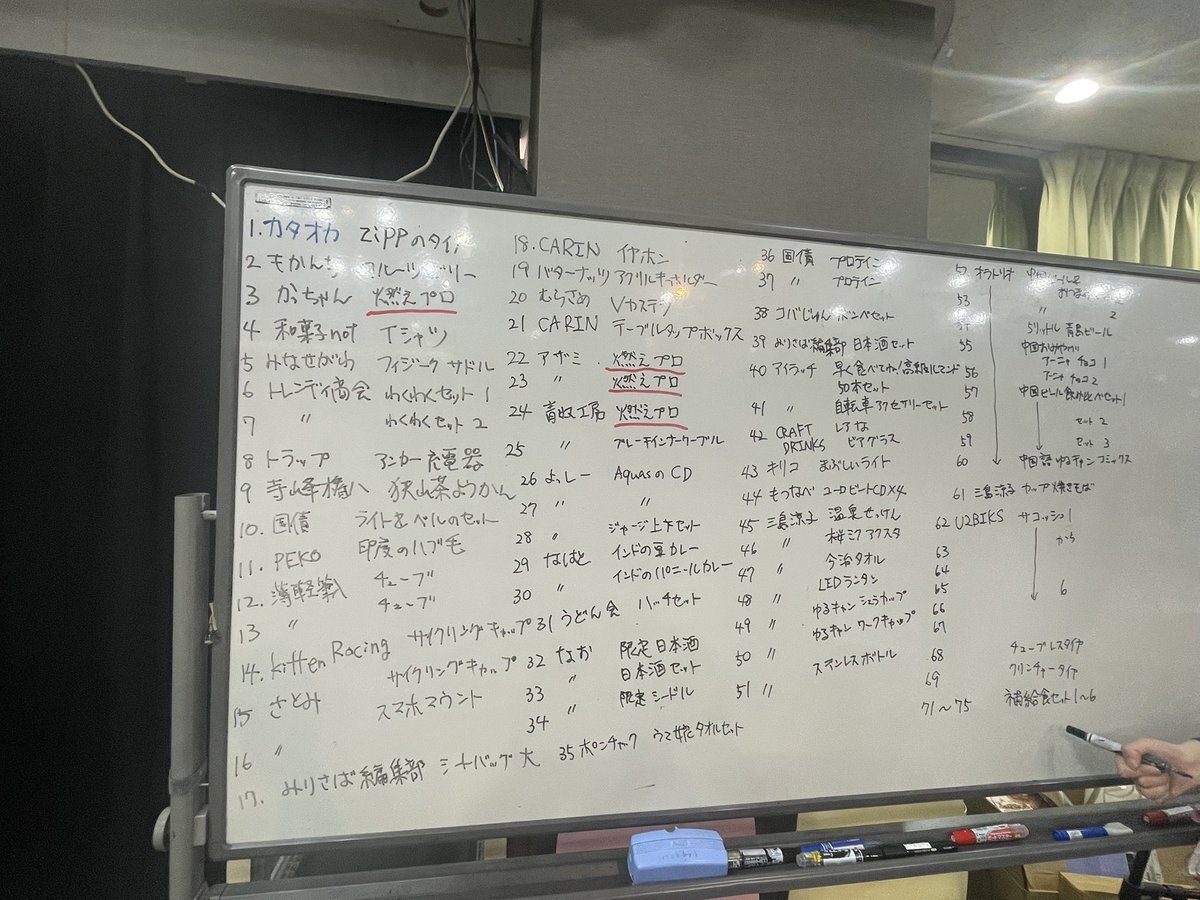 1. カタオカ ZiPPのタイヤ
2 もかんち フルーツゼリー
3 かちゃん 燃えプロ
4 和菓子not Tシャツ
5 みなせがわ フィジーク サドル
6 トレンディ商会 わくわくセット1
7 〃 わくわくセット2
8 トラップ アンカー充電器
9 寺山峰橋八 狭山茶ようかん
10. 国債 ライト&ベルのセット
11. PEKO 印度のハブ毛
12. 薄軽 チューブ
13 〃 チューブ
14. Kitten Racing サイクリングキャップ
15 さとみ サイクリングキャップ
16 〃 スマホマウント
17. みりさば編集部 シートバッグ大
18. CARIN イヤホン
19 バターナッツ アクリルキーホルダー
20 むらさめ Vカステラ
21 CARIN テーブルタップボックス
22 アザミ 燃えプロ
23 〃 燃えプロ
24 青収工房 燃えプロ
25 〃 ブレーキインナーケーブル
26 よしー AquasのCD
27 〃 〃
28 〃 ジャージ上下セット
29 なはと インドの豆カレー
30 〃 インドのパニールカレー
31 うどん会 ハッチセット
32 なお 限定日本酒
33 〃 日本酒セット
34 〃 限定シードル
35 ポンチャック ウマ娘タオルセット
36 国債 プロテイン
37 〃 プロテイン
38 コバじゅん ボンベセット
39 みりさば編集部 日本酒セット
40 アイラッチ 早く食べてね!高級ルマンド
50本セット
41 〃 自転車アクセサリーセット
42 CRAFT DRINKS レアな
ビアグラス
43 キリコ まぶしいライト
44 もつなべ ユーロビートCD×4
45 三島涼子 温泉せっけん
46 〃 桜ミクアクスタ
47 〃 今治タオル
48 〃 LEDランタン
49 〃 ゆるキャン シェラカップ
50 〃 ゆるキャン ワークキャップ
51 〃 ステンレスボトル
52 オラトリオ 中国ビール&
おつまみ
53 〃 2
54 5リットル 青島ビール
55 中国おみやげ
アーニャ チョコ 1
56 アーニャ チョコ 2
57 中国ビール飲み比べセット1
58 セット 2
59 セット 3
60 中国語 ゆるキャンコミックス
61 三島涼子 カップ焼きそば
62 U2BIKS サコッシュ1
63 から
64
65
66 6
67
68 チューブレスタイヤ
69 クリンチャータイヤ
71〜75 補給食セット1〜6